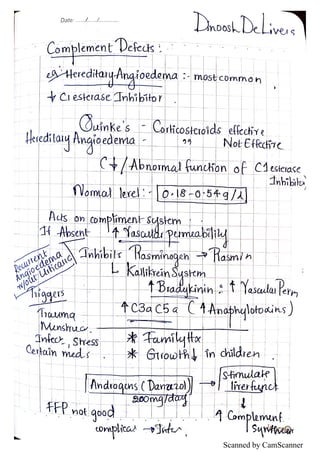 Date: / /
Dnoosh DeLivers
Complement Defects :
eg Hereditary Angioedema :- most common
↓ C1 esterase Inhibitor
Quinke's - Corticosteroids effective
Hereditary Angioedema - " Not Effective
C↓/Abnormal function of C1 esterase Inhibitor
Normal level :- 0.18-0.54g/L
Acts on compliment system
If Absent ↑ Vascular permeability
Recurrent Angioedema w/out Urticaria
Inhibits Plasminogen → Plasmin
Kallikrein System
↑ Bradykinin :- ↑ Vascular Perm
Triggers
↑ C3a C5a (↑ Anaphylotoxins)
Trauma
Menstruc.
Infecⁿ, Stress
Certain meds.
* Family Hx
* Growth↓ in children
Androgens (Danazol) → stimulate liver funct
200mg/day
FFP not good
complicaⁿ →
↑ Complement
Scanned by CamScanner